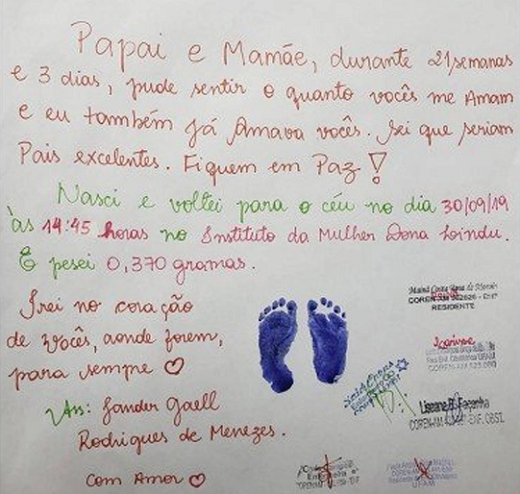 Papai e Mamãe, durante 21 semanas
e 3 dias, pude sentir o quanto vocês me Amam
e eu também já Amava vocês. Sei que seriam
Pais excelentes. Fiquem em Paz!
Nasci e voltei para o céu no dia 30/09/19
às 14:45 horas no Instituto da Mulher Dona Lindu.
E pesei 0,370 gramas.
Irei no coração
de vocês, aonde forem,
para sempre ♡
Ass: Sander Gaell
Rodrigues de Menezes.
Com Amor ♡
RESIDENTE
UFAM